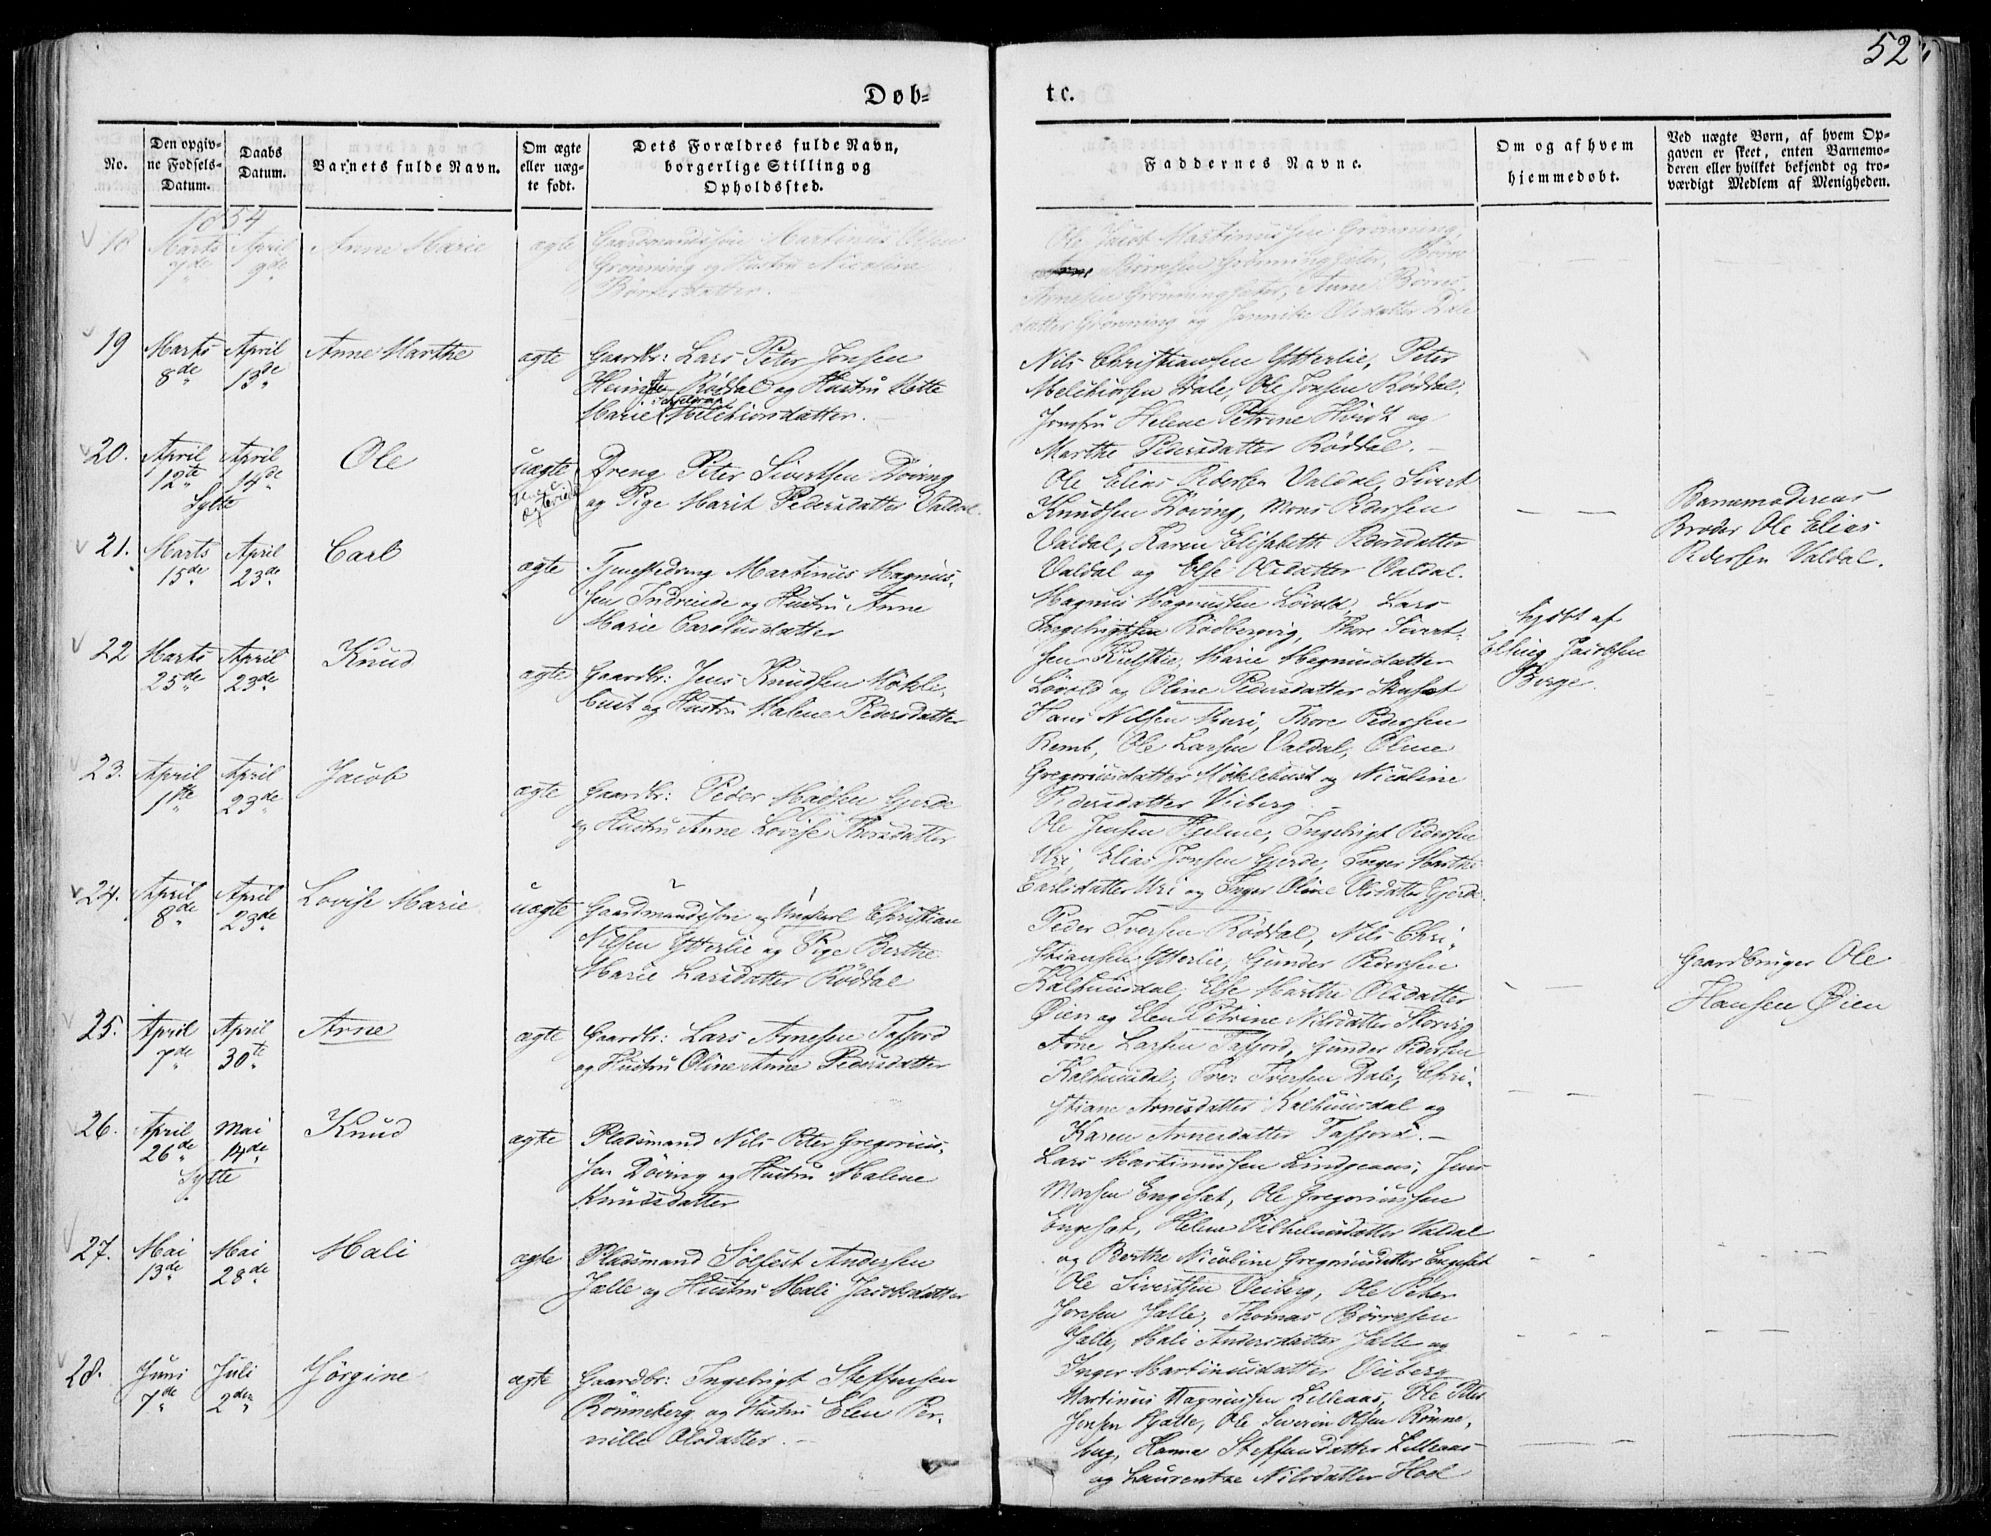 52
Døb=
te.
No.
Den opgiv=
ne Fødsels=
Datum.
Daabs
Datum.
Barnets fulde Navn.
Om ægte
eller uæg=
te født.
Dets Forældres fulde Navn,
borgerlige Stilling og
Opholdssted.
Faddernes Navne.
Om og af hvem
hjemmedøbt.
Ved uægte Børn, af hvem Op=
gaven er skeet, enten Barnemo=
deren eller hvilket bekjendt og tro=
værdigt Medlem af Menigheden.
1854
18 Marts 7de April 9de Anne Marie ægte
Gaardmandssøn Martinus Olsen
Grønning og Hustru Nicoline
Børresdatter.
Ole Jacob Martinussen Grønning,
Børresen Grønningsæter, Børre
Arnesen Grønningsæter, Anne Børres
datter Grønning og Jannike Olsdatter Dale
19 Marts 8de April 13de Anne Marthe ægte
Gaardbr: Lars Peter Jonsen
Rødal og Hustru Mette
Marie Melchiorsdatter.
Nils Christiansen Ytterlie, Peter
Melchiorsen Dale, Ole Jonsen Røddal,
Jomfru Helene Petrine Hvidt og
Marthe Pedersdatter Røddal.
20. April 12te April 14de Ole uægte
Sylte
Dreng Peter Sivertsen Døving
og Pige Marit Pedersdatter Valdal.
Ole Elias Pedersen Valdal, Sivert
Knudsen Døving, Mons Pedersen
Valdal, Karen Elisabeth Pedersdatter
Valdal og Else Olsdatter Valdal.
Barnemoderens
Broder Ole Elias
Pedersen Valdal.
21. Marts 15de April 23de Carl ægte
Tjenestedreng Martinus Magnus-
sen Indreeide og Hustru Anne
Marie Carolusdatter
Magnus Magnussen Løvold, Lars
Ingebrigtsen Rødbergvig, Thore Sivert-
sen, Marie Magnusdatter
Løvold og Oline Pedersdatter
22 Marts 25de April 23de Knud ægte
Gaardbr: Jens Knudsen Møkle-
bust og Hustru Malene Pedersdatter
Hans Nilsen Muri, Thore Pedersen
Remb, Ole Larsen Valdal, Oline
Gregoriusdatter Møklebust og Nicoline
Pedersdatter Viberg.
hjdbt af
Elling Jacobsen
Berge.
23. April 1ste April 23de Jacob ægte
Gaardbr: Peder Madsen Gjerde
og Hustru Anne Lovise Thoresdatter
Ole Jensen Hjelme, Ingebrigt Pedersen
Uri, Elias Jonsen Gjerde, Inger Marthe
Carlsdatter Uri og Inger Oline Olsdatter Gjerde.
24. April 8de April 23de Lovise Marie uægte
Gaardmandssøn og Ungkarl Christian
Nilsen Ytterlie og Pige Berthe
Marie Larsdatter Røddal
Peder Iversen Røddal, Nils Chri-
stiansen Ytterlie, Gunder Pedersen
Kalhuusdal, Else Marthe Olsdatter
Øien og Elen Petrine Nilsdatter Storvig
Gaardbruger Ole
Hansen Øien
25. April 7de April 30te Arne ægte
Gaardbr: Lars Arnesen Tafjord
og Hustru Oline Anne Pedersdatter
Arne Larsen Tafjord, Gunder Pedersen
Kalhuusdal, Iver Iversen Dale, Chri-
stiane Arnesdatter Kalhuusdal og
Karen Arnesdatter Tafjord.
26. April 26de Mai 14de Knud ægte
Sylte
Pladsmand Nils Peter Gregorius-
sen Døving og Hustru Malene
Knudsdatter
Lars Martinussen Lindgeans, Jens
Monsen Engeset, Ole Gregoriussen
Engeset, Helene Vilhelmusdatter Valdal
og Berthe Nicoline Gregoriusdatter Engeset
27. Mai 13de Mai 28de Mali ægte
Pladsmand Sølfest Andersen
Jalle og Hustru Mali Jacobsdatter
Ole Sivertsen Veiberg, Ole Peter
Jonsen Jalle, Thomas Børresen
Jalle, Mali Andersdatter Jalle og
Inger Martinusdatter Veiberg
28. Juni 7de Juli 2den Jørgine ægte
Gaardbr: Ingebrigt Steffensen
Rønneberg og Hustru Elen Per-
nille Olsdatter.
Martinus Magnussen Lilleaas, Ole Peter
Jonsen Hjalle, Ole Severin Olsen Rønne-
berg, Hanna Steffensdatter Lilleaas
og Laurentze Nilsdatter Hoel